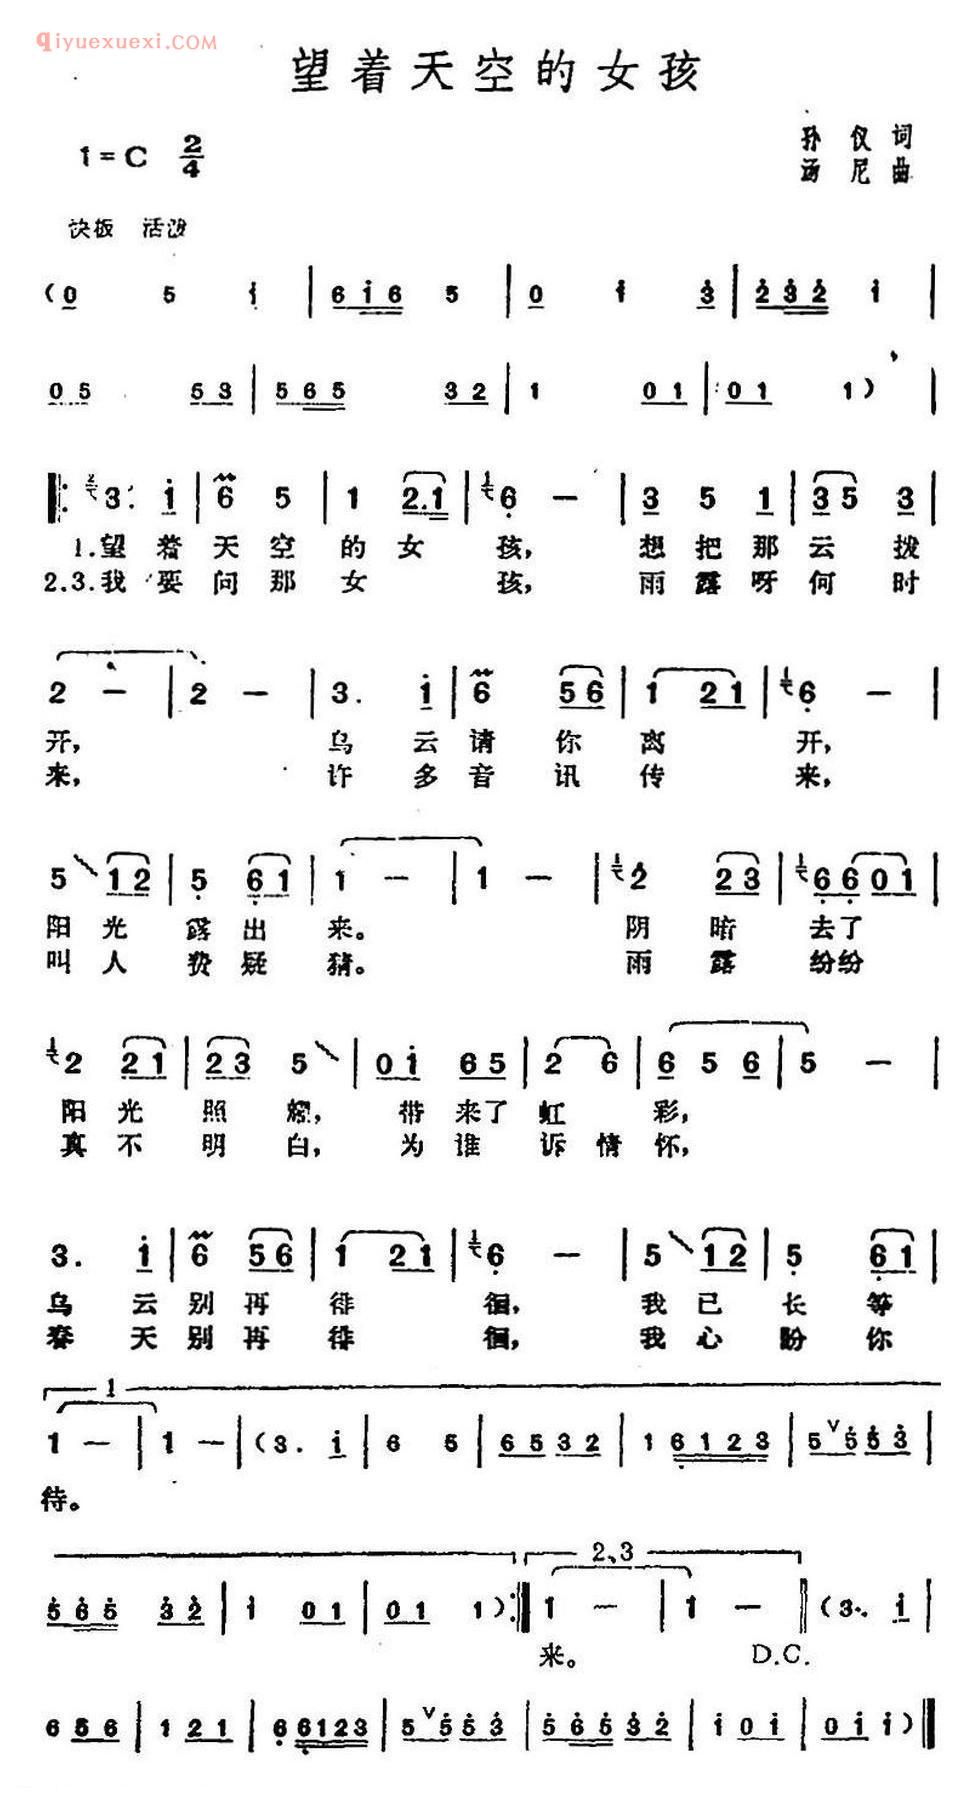 qiyuexuexi.COM
望着天空的女孩
孙仪词
1=C 2/4
汤尼曲
快板 活泼
(0 5 i | 6i6 5 | 0 i 3 | 232 i |
05 53 | 565 32 | 1 01 | 01 1) |
3. i | 6 5 | 1 2.1 | 6 — | 3 5 1 | 35 3 |
1.望着天空的女孩,想把那云拨
2.3.我要问那女孩,雨露呀何时
2 — | 2 — | 3. i | 6 56 | 1 21 | 6 — |
开,乌云请你离开,
来,许多音讯传来,
5 12 | 5 61 | 1 — | 1 — | 2 23 | 66 01 |
阳光露出来。阴暗去了
叫人费疑猜。雨露纷纷
2 21 | 23 5 | 0i 65 | 2 6 | 6 5 6 | 5 — |
阳光照耀,带来了虹彩,
真不明白,为谁诉情怀,
3. i | 6 56 | 1 21 | 6 — | 5 12 | 5 61 |
乌云别再徘徊,我已长等
春天别再徘徊,我心盼你
1
1 — | 1 — | (3. i | 6 5 | 65 32 | 1 6123 | 5 V 5 53 |
待。
2、3
565 32 | i 01 | 01 1) :| 1 — | 1 — || (3. i |
来。 D.C.
6 56 | 1 21 | 6 6123 | 5 V 5 53 | 565 32 | i 0i | 0i i) ||